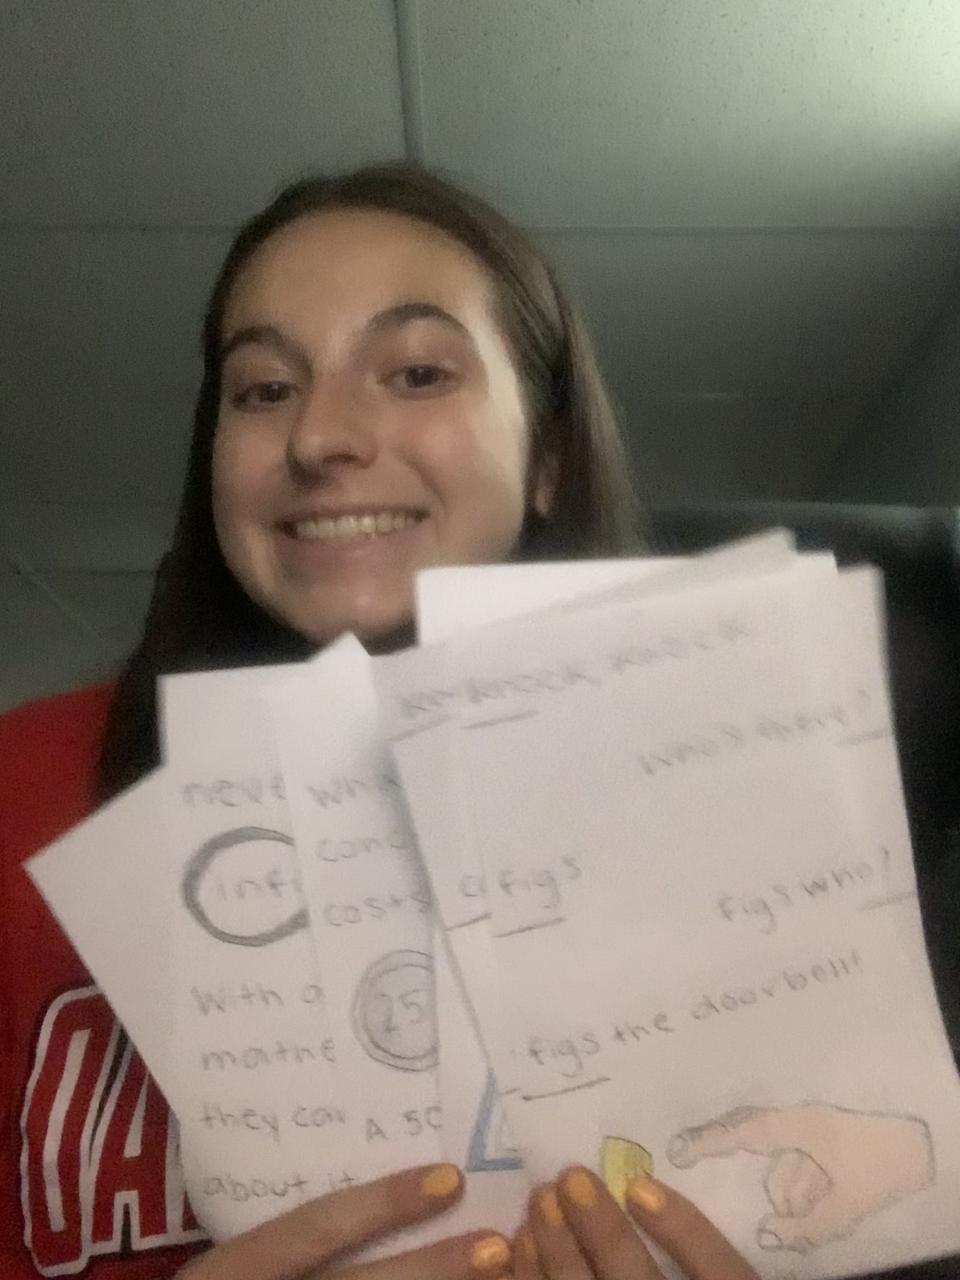 Knock, Knock
Who's there?
figs
Figs who?
figs the doorbell!
neve
infi
with a
mathe
they can
about it
conc
costs
25
A 50
OA